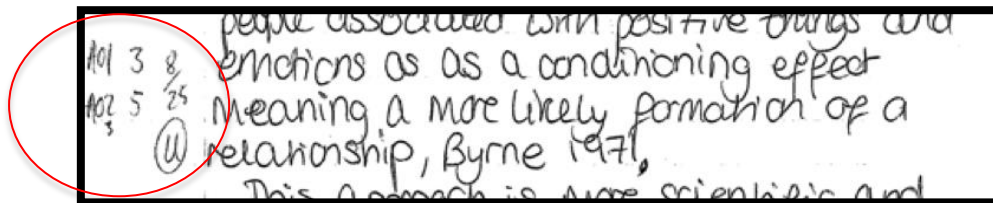 people associated with positive things and
AO1 3 8/25 emotions as as a conditioning effect
AO2 5 meaning a more likely formation of a
3
U relationship, Byrne 1971.
This approach is more scientific and